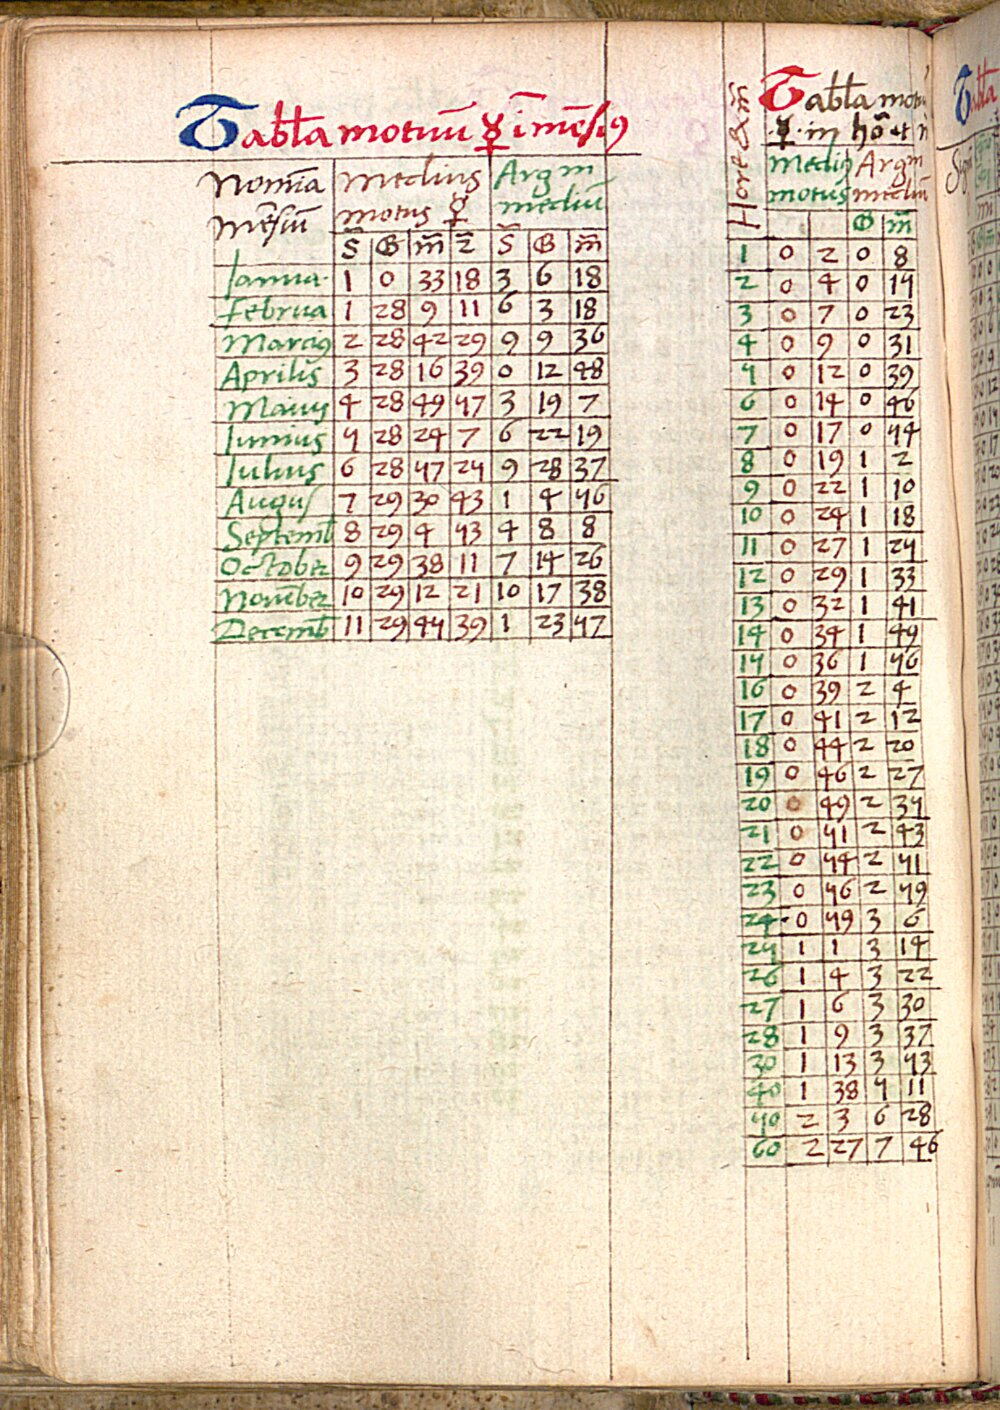 Tabła motuū ☿ ī mēsiꝰ
Nomīa Medius Argm
mēsiū motus ☿ mediū
S̄ G m̄ z̄ S̄ G m̄
Ianua 1 0 33 18 3 6 18
Februa 1 28 9 11 6 3 18
Marciꝰ 2 28 42 29 9 9 36
Aprilis 3 28 16 39 0 12 48
Maius 4 28 49 57 3 19 7
Iunius 5 28 24 7 6 22 19
Iulius 6 28 57 25 9 28 37
Augus 7 29 30 43 1 4 56
Septemb 8 29 4 53 4 8 8
October 9 29 38 11 7 14 26
Nouēber 10 29 12 21 10 17 38
Decemb 11 29 45 39 1 23 57
Hore & m̄
Tabła motu
☿ in hō et
Mediꝰ Argm
motus mediū
G m̄
1 0 2 0 8
2 0 4 0 15
3 0 7 0 23
4 0 9 0 31
5 0 12 0 39
6 0 14 0 46
7 0 17 0 54
8 0 19 1 2
9 0 22 1 10
10 0 24 1 18
11 0 27 1 25
12 0 29 1 33
13 0 32 1 41
14 0 34 1 49
15 0 36 1 56
16 0 39 2 4
17 0 41 2 12
18 0 44 2 20
19 0 46 2 27
20 0 49 2 35
21 0 51 2 43
22 0 54 2 51
23 0 56 2 59
24 0 59 3 6
25 1 1 3 14
26 1 4 3 22
27 1 6 3 30
28 1 9 3 37
30 1 13 3 53
40 1 38 5 11
50 2 3 6 28
60 2 27 7 46